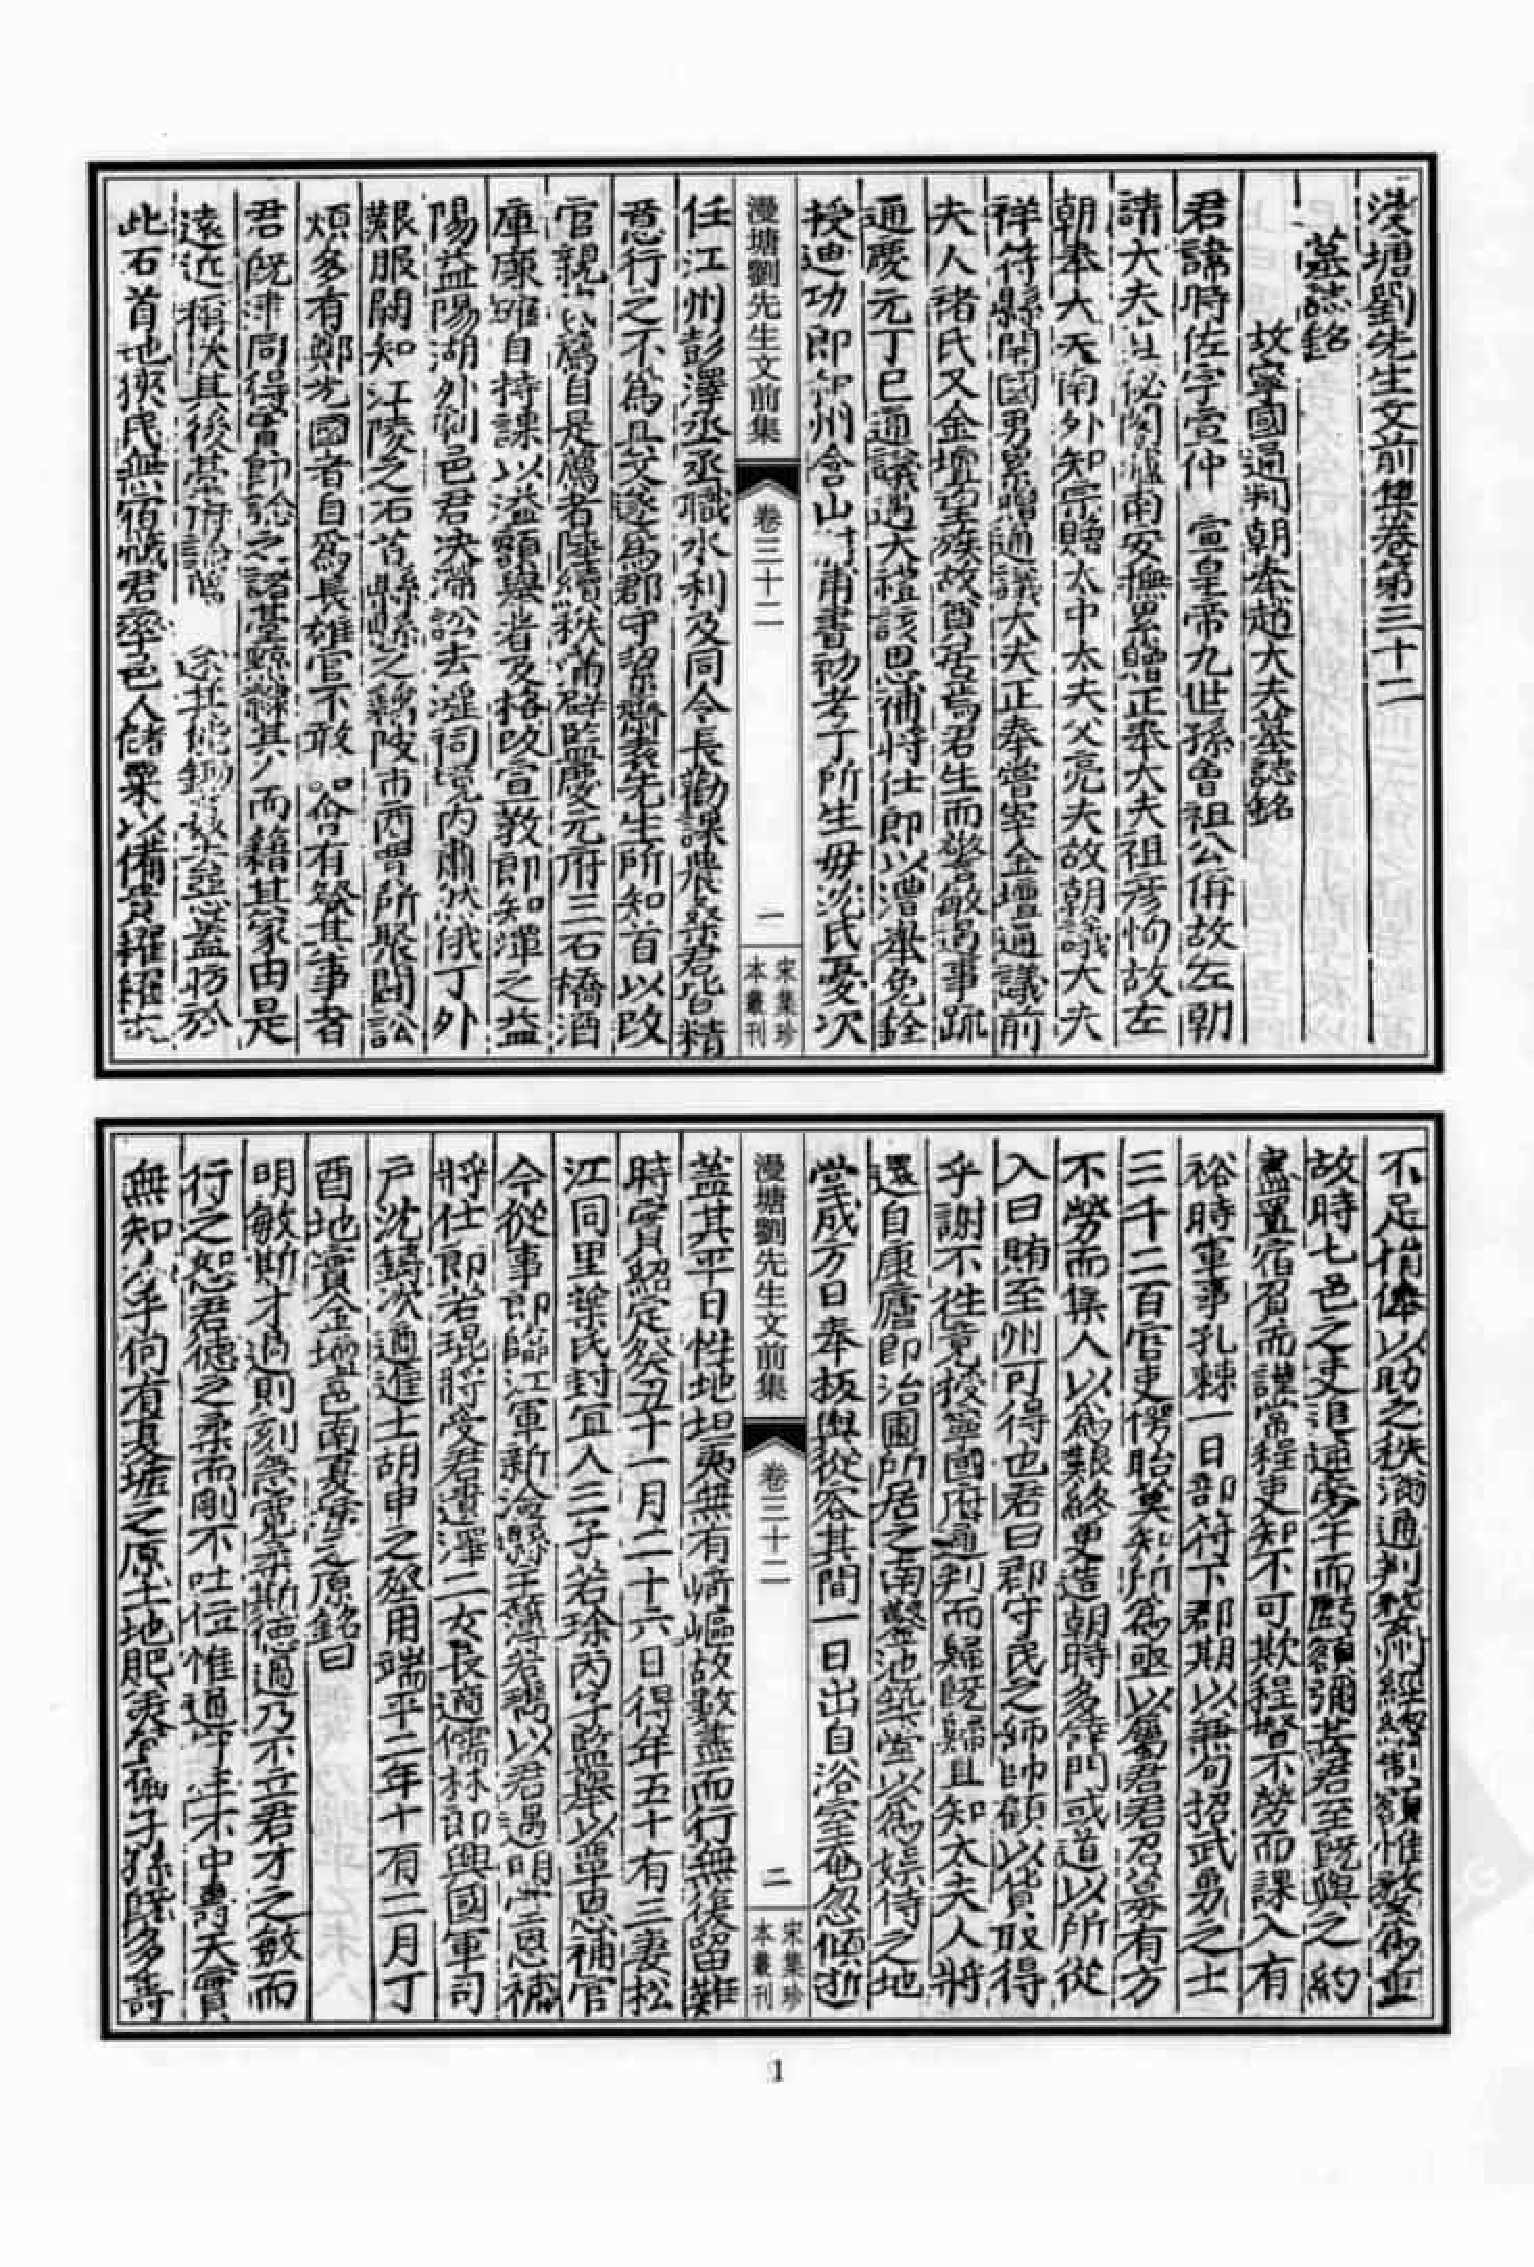 漫塘劉先生文前集卷第三十二
墓誌銘
故寧國通判朝奉趙大夫墓誌銘
君諱時佐字宣仲 宣皇帝九世孫曾祖公侢故左朝
請大夫直祕閣瀘南安撫累贈正奉大夫祖彥恂故左
朝奉大夫南外知宗贈太中大夫父亮夫故朝議大夫
祥符縣開國男累贈通議大夫正奉嘗宰金壇通議前
夫人諸氏又金壇望族故首居焉君生而警敏遇事疏
通慶元丁巳通議遇大禮該恩補將仕郎以漕舉免銓
授迪功郎和州含山尉甫書初考丁所生母沈氏憂次
漫塘劉先生文前集
卷三十二
一
宋集珍
本叢刊
任江州彭澤丞丞職水利及同令長勸課農桑君皆精
意行之不為具文遂為郡守 先生所知首以改
官親 薦自是薦者陸續秩滿辟監慶元府三石橋酒
庫廉確自持課以溢額舉者及格改宣教郎知潭之益
陽益陽湖外劇邑君決滯訟去淫祠境內肅然俄丁外
艱服闋知江陵之石首縣縣之藕陂市西賈所聚鬭訟
煩多有鄭光國者自為長雄官不敢 有發其事者
君既津同得實即 之諸臺黥隸其人而籍其家由是
遠近稱快其後 蓋坊於
此石首地狹民無宿 君率邑人儲粟以備貴糴
不足捐俸以助之秩滿通判婺州經總制額惟婺為重
故時七邑之吏追逋旁午而虧額彌甚君至既與之約
盡置宿負而謹常程吏知不可欺程督不勞而課入有
裕時軍事孔棘一日部符下郡期以兼旬招武勇之士
三千二百官吏愕眙莫知所為亟以屬君君召募有方
不勞而集人以為難終更造朝時多倖門或道以所從
入曰賄至州可得也君曰郡守民之師帥顧以貨取得
乎謝不往竟授寧國府通判而歸既歸且知太夫人將
還自康廬即治圃所居之南鑿池築堂以為娛侍之地
堂成方日奉板輿從容其間一日出自浴室奄忽傾逝
漫塘劉先生文前集
卷三十二
二
宋集珍
本叢刊
蓋其平日性地坦夷無有崎嶇故數盡而行無復留難
時實紹定癸丑十一月二十六日得年五十有三妻松
江同里葉氏封宜人三子若琭丙子監舉以覃恩補官
今從事郎臨江軍新淦縣主簿若 以君遇明堂恩補
將仕郎若琨將受君遺澤二女長適儒林郎興國軍司
戶沈鑄次適進士胡申之卜用端平二年十有二月丁
酉地實金壇邑南夏墟之原銘曰
明敏斯才過則刻急寬柔斯德過乃不立君才之敏而
行之恕君德之柔而剛不吐位惟通守年不中壽天實
無知人乎何有夏墟之原土地肥美 子孫既多